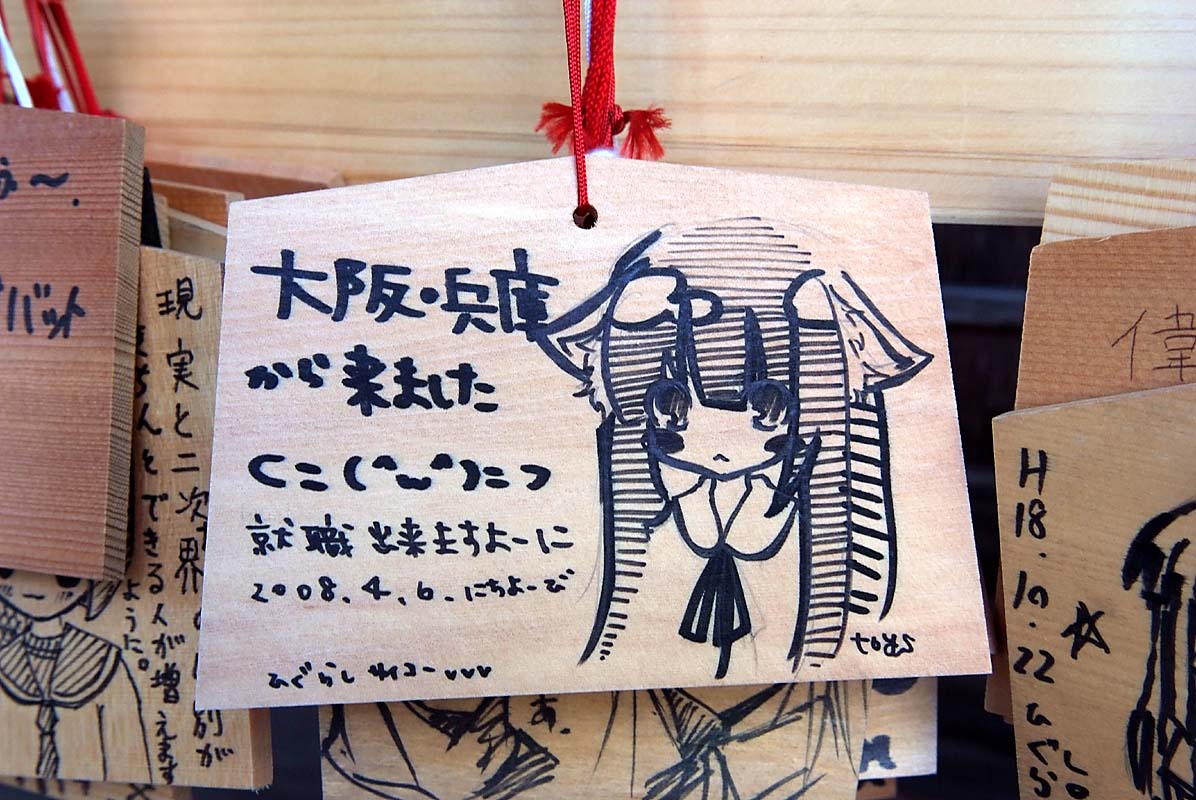 大阪・兵庫
から来ました
⊂ニ(^ω^)ニつ
就職出来ますよーに
2008.4.6.にちよーび
ひぐらしサイコー♥♥♥
バット
現実と二次界の
別が
きちんとできる人が増えます
ように。
偉
H
18.
10.
22
ひぐらし